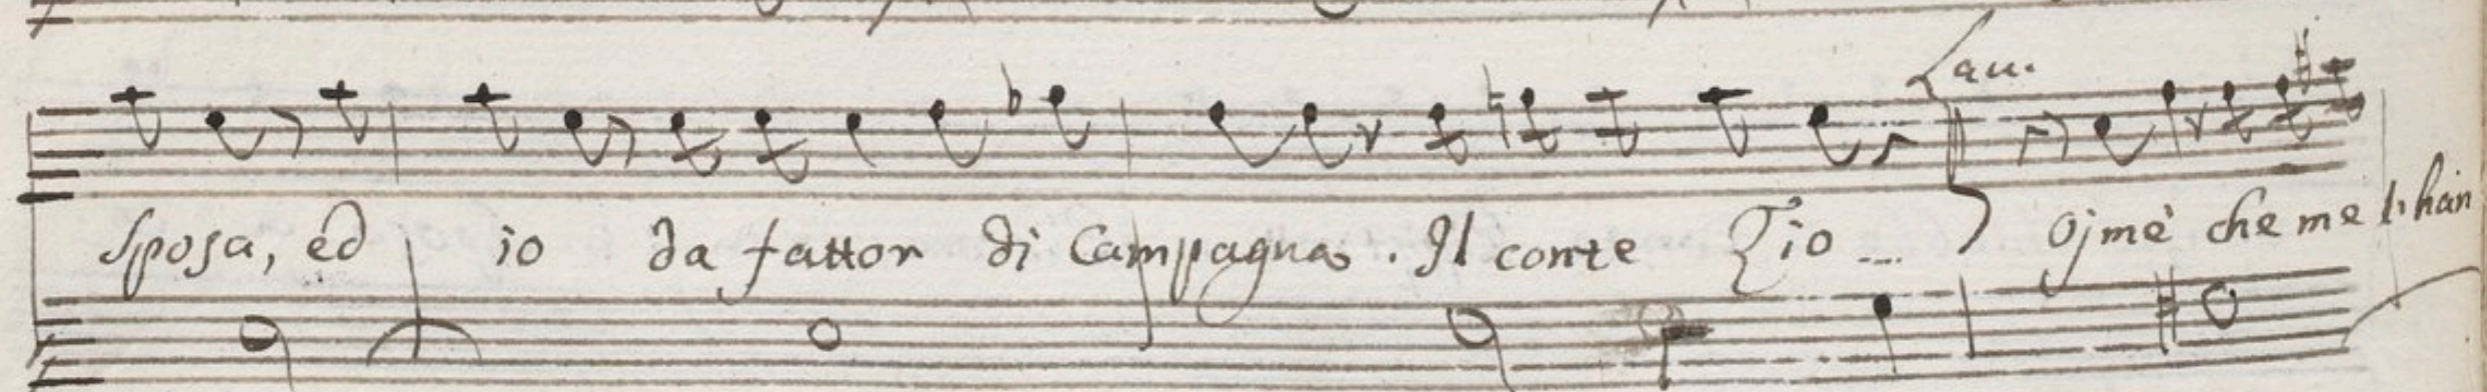 Lau.
sposa, ed io da fattor di Campagna. Il conte Zio ... Ojmè che me l'han